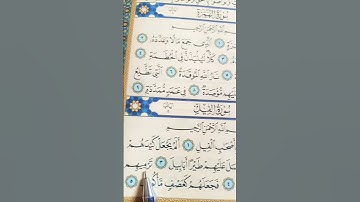 سُورَةُ الهُمَزَةِ
بِسْمِ اللَّهِ الرَّحْمَٰنِ الرَّحِيمِ
جَمَعَ مَالًا وَعَدَّدَهُ ٢
كَلَّا لَيُنۢبَذَنَّ فِي الْحُطَمَةِ ٤
نَارُ اللَّهِ الْمُوقَدَةُ ٦ الَّتِي تَطَّلِعُ
مُؤْصَدَةٌ ٨ فِي عَمَدٍ مُمَدَّدَةٍ ٩
سُورَةُ الفِيلِ
بِسْمِ اللَّهِ الرَّحْمَٰنِ الرَّحِيمِ
أَصْحَٰبِ الْفِيلِ ١ أَلَمْ يَجْعَلْ كَيْدَهُمْ
عَلَيْهِمْ طَيْرًا أَبَابِيلَ ٣ تَرْمِيهِم
٤ فَجَعَلَهُمْ كَعَصْفٍ مَأْكُولٍ